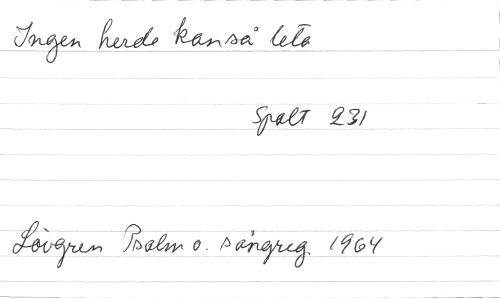 Ingen herde kan så leta
Spalt 231
Lövgren Psalm o. sångreg. 1964